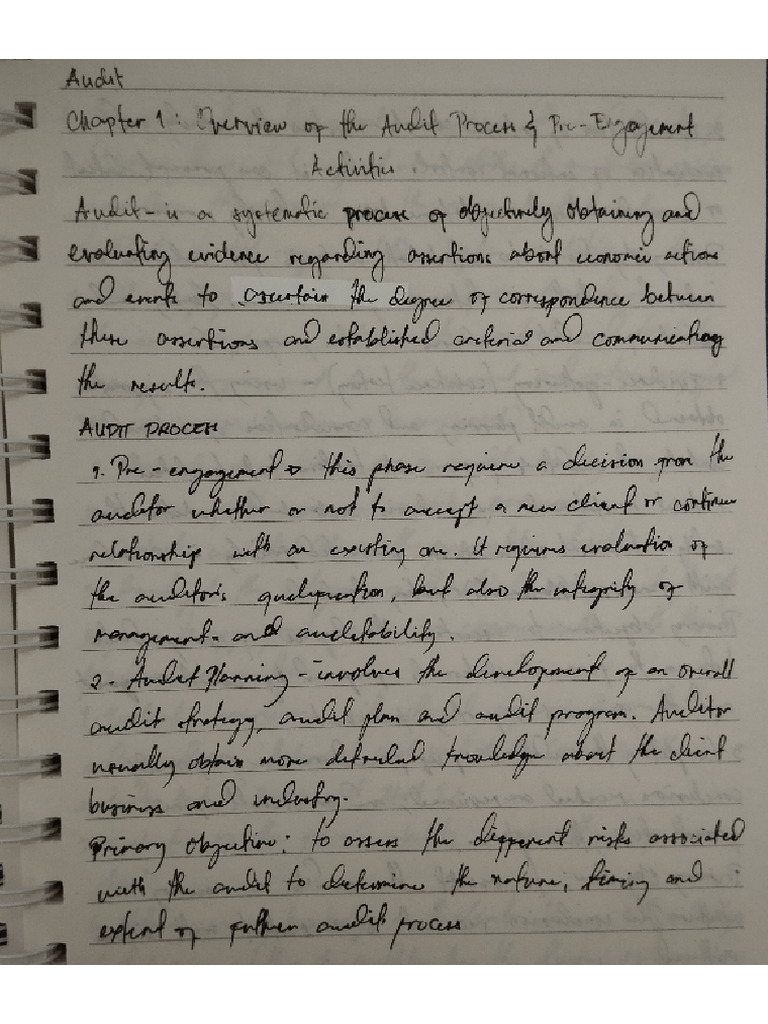 Audit
Chapter 1: Overview of the Audit Process & Pre-Engagement
Activities
Audit - is a systematic process of objectively obtaining and
evaluating evidence regarding assertions about economic actions
and events to ascertain the degree of correspondence between
these assertions and established criteria and communicating
the results.
AUDIT PROCESS
1. Pre-engagement → this phase require a decision from the
auditor whether or not to accept a new client or continue
relationship with an existing one. It requires evaluation of
the auditor's qualification, but also the integrity of
management and auditability.
2. Audit Planning - involves the development of an overall
audit strategy, audit plan and audit program. Auditor
usually obtain more detailed knowledge about the client
business and industry.
Primary objective: to assess the different risks associated
with the audit to determine the nature, timing and
extent of further audit process